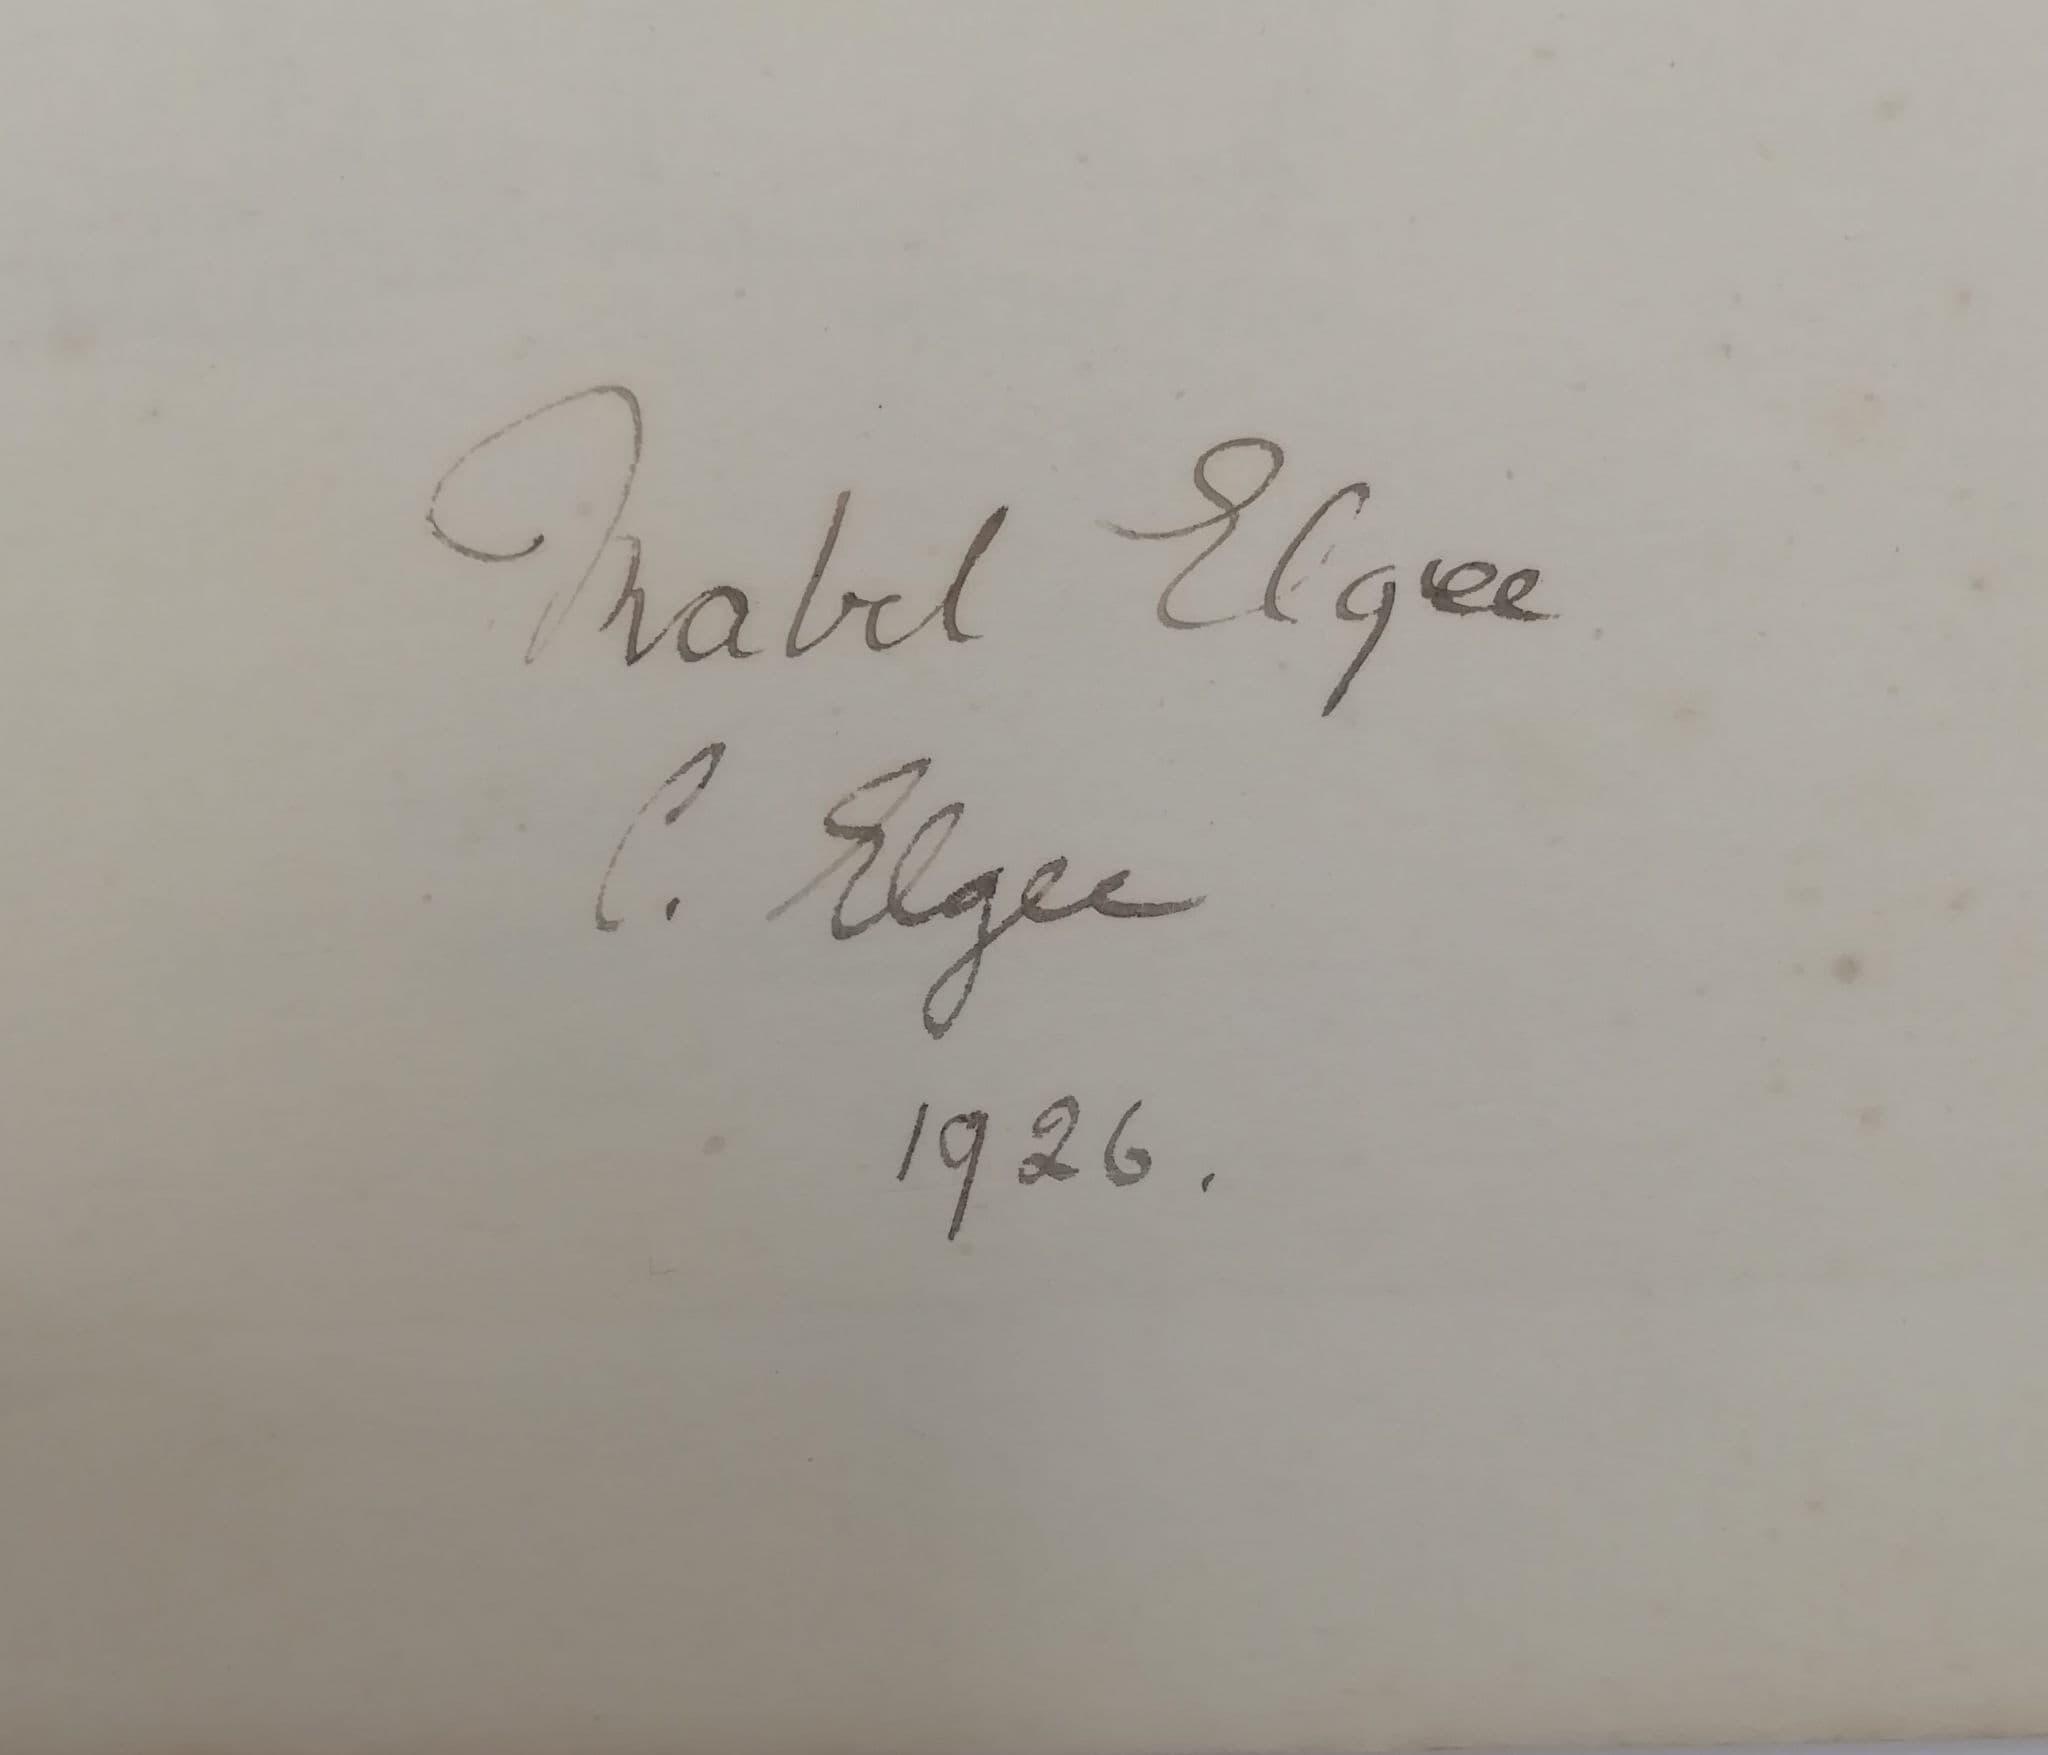 Mabel Elgee
C. Elgee
1926.